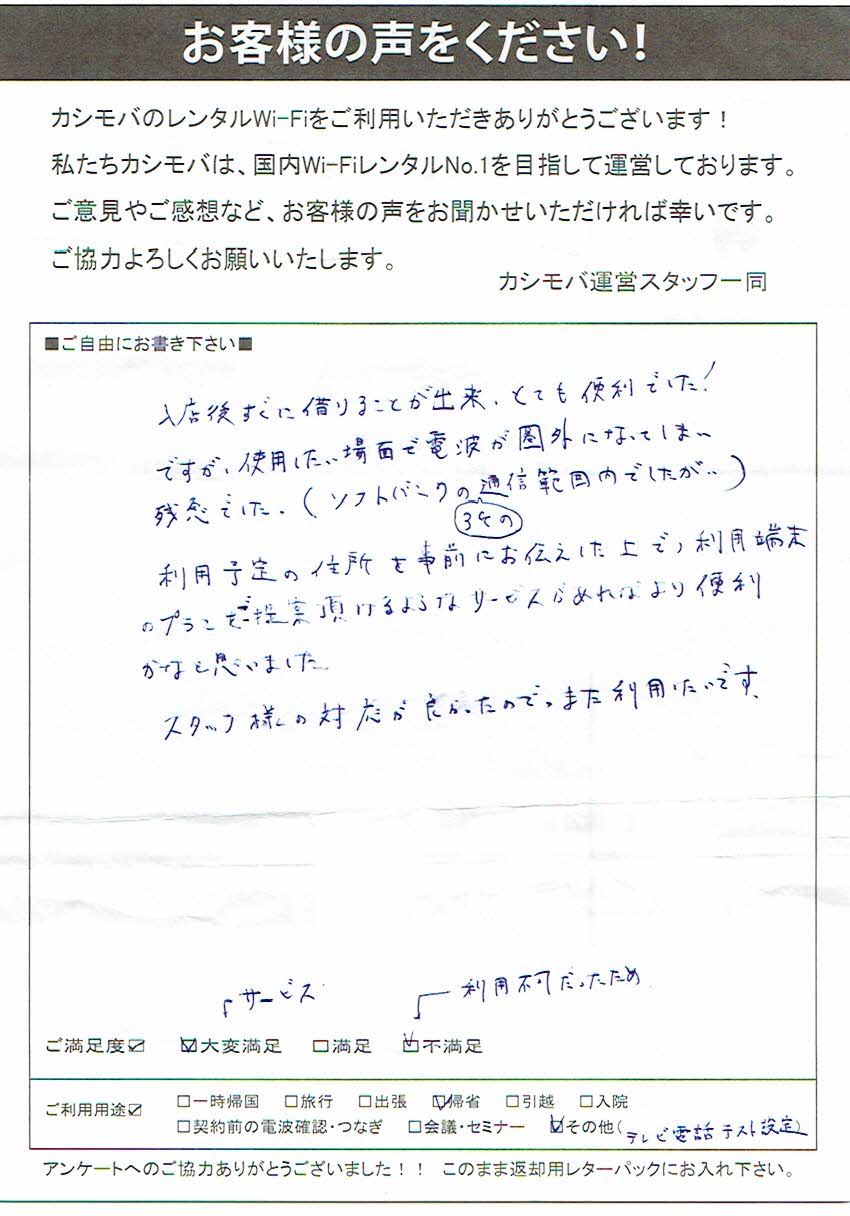 お客様の声をください!
カシモバのレンタルWi-Fiをご利用いただきありがとうございます!
私たちカシモバは、国内Wi-FiレンタルNo.1を目指して運営しております。
ご意見やご感想など、お客様の声をお聞かせいただければ幸いです。
ご協力よろしくお願いいたします。
カシモバ運営スタッフ一同
■ご自由にお書き下さい■
入店後すぐに借りることが出来、とても便利でした!
ですが、使用したい場面で電波が圏外になってしまい
残念でした。(ソフトバンクの通信範囲内でしたが‥)
利用予定の住所を事前にお伝えした上で、利用端末
のプランをご提案頂けるようなサービスがあればより便利
かなと思いました
スタッフ様の対応が良かったので、また利用したいです。
サービス
利用不可だったため
ご満足度☑ ☑大変満足 □満足 ☑不満足
ご利用用途☑ □一時帰国 □旅行 □出張 ☑帰省 □引越 □入院
□契約前の電波確認・つなぎ □会議・セミナー ☑その他(テレビ電話テスト設定)
アンケートへのご協力ありがとうございました!! このまま返却用レターパックにお入れ下さい。